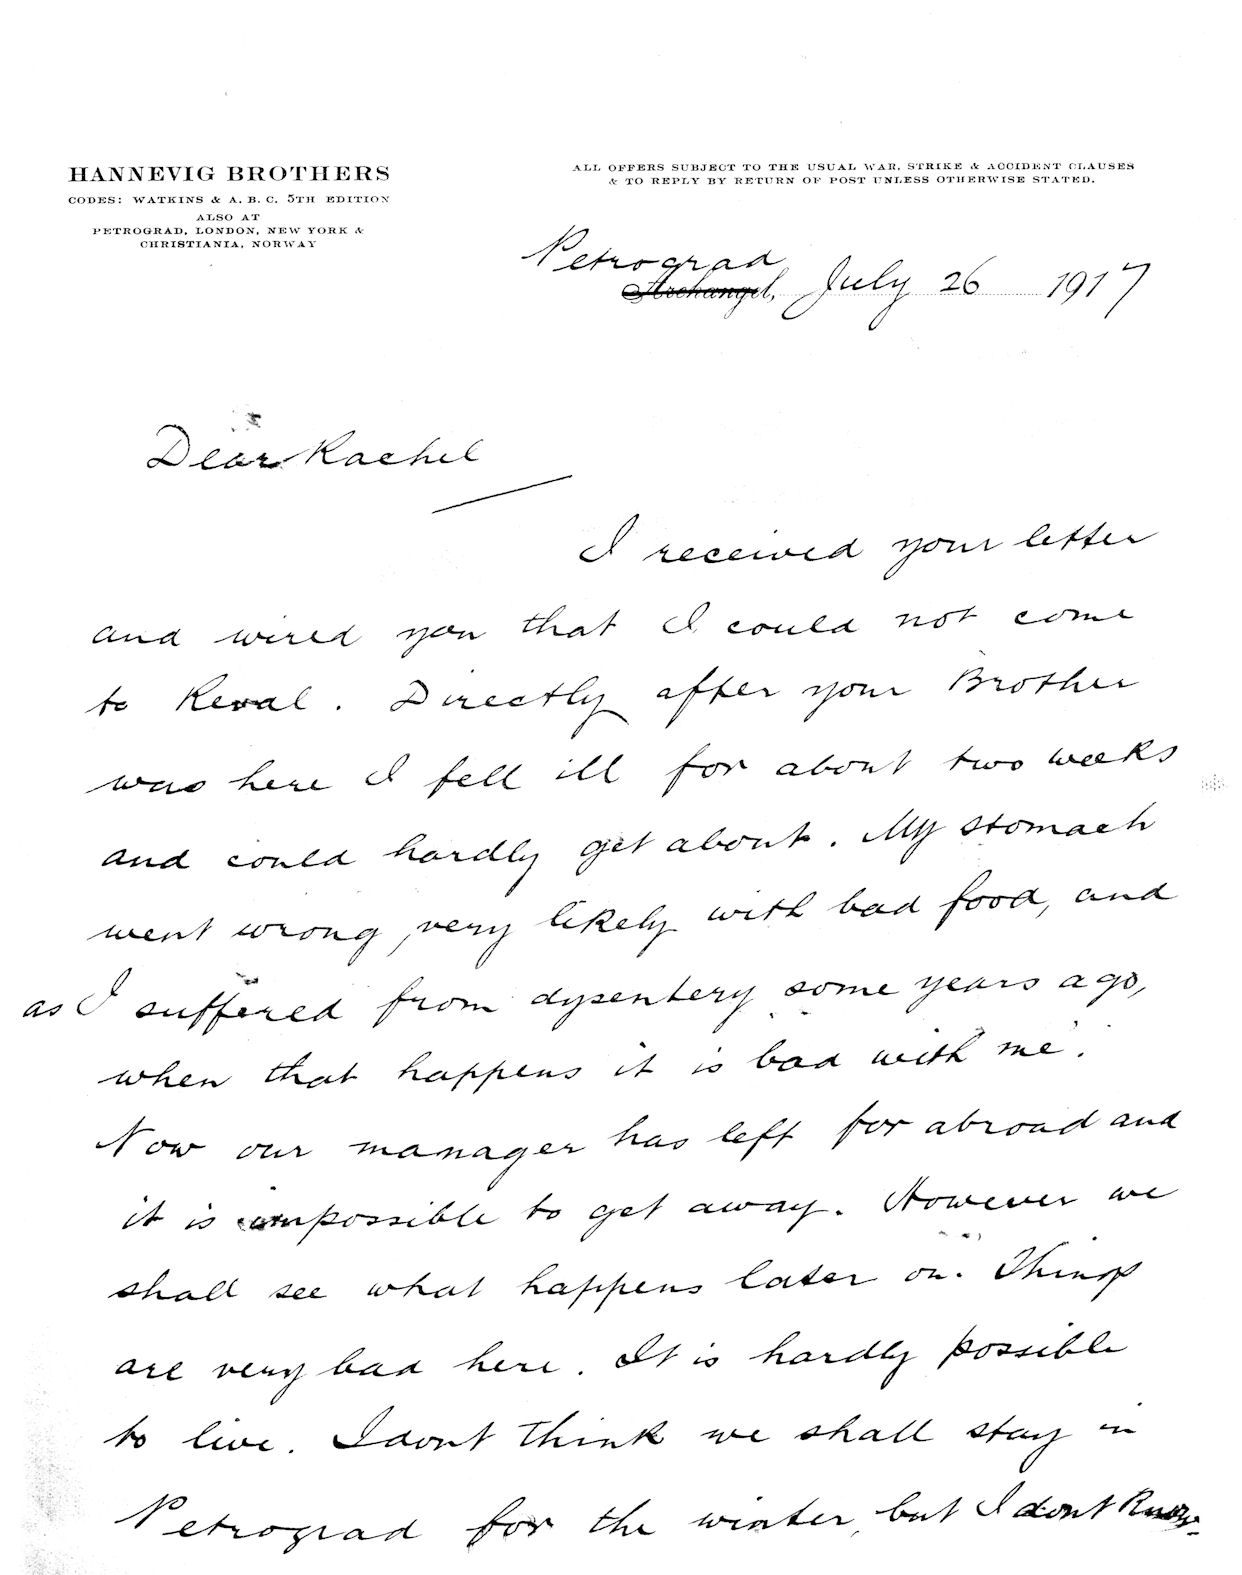 HANNEVIG BROTHERS
CODES: WATKINS & A. B. C. 5TH EDITION
ALSO AT
PETROGRAD, LONDON, NEW YORK &
CHRISTIANIA, NORWAY
ALL OFFERS SUBJECT TO THE USUAL WAR, STRIKE & ACCIDENT CLAUSES
& TO REPLY BY RETURN OF POST UNLESS OTHERWISE STATED.
Petrograd
Archangel, July 26 1917
Dear Rachel
I received your letter
and wired you that I could not come
to Reval. Directly after your Brother
was here I fell ill for about two weeks
and could hardly get about. My stomach
went wrong, very likely with bad food, and
as I suffered from dysentery some years ago,
when that happens it is bad with me.
Now our manager has left for abroad and
it is impossible to get away. However we
shall see what happens later on. Things
are very bad here. It is hardly possible
to live. I dont think we shall stay in
Petrograd for the winter, but I dont know